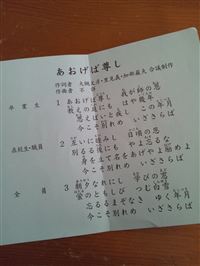 あおげば尊し
作詞者 大槻文彦・里見義・加部厳夫 合議制作
作曲者 不詳
卒業生 1 あおげば尊し 我が師の恩
教えの庭にも はや幾年
思えばいと疾し この年月
今こそ別れめ いざさらば
在校生・職員 2 互いに睦みし 日頃の恩
別るる後にも やよ忘るな
身を立て名をあげ やよ励めよ
今こそ別れめ いざさらば
全員 3 朝夕なれにし 学びの窓
蛍のともしび つむ白雪
忘るるまぞなき ゆく年月
今こそ別れめ いざさらば